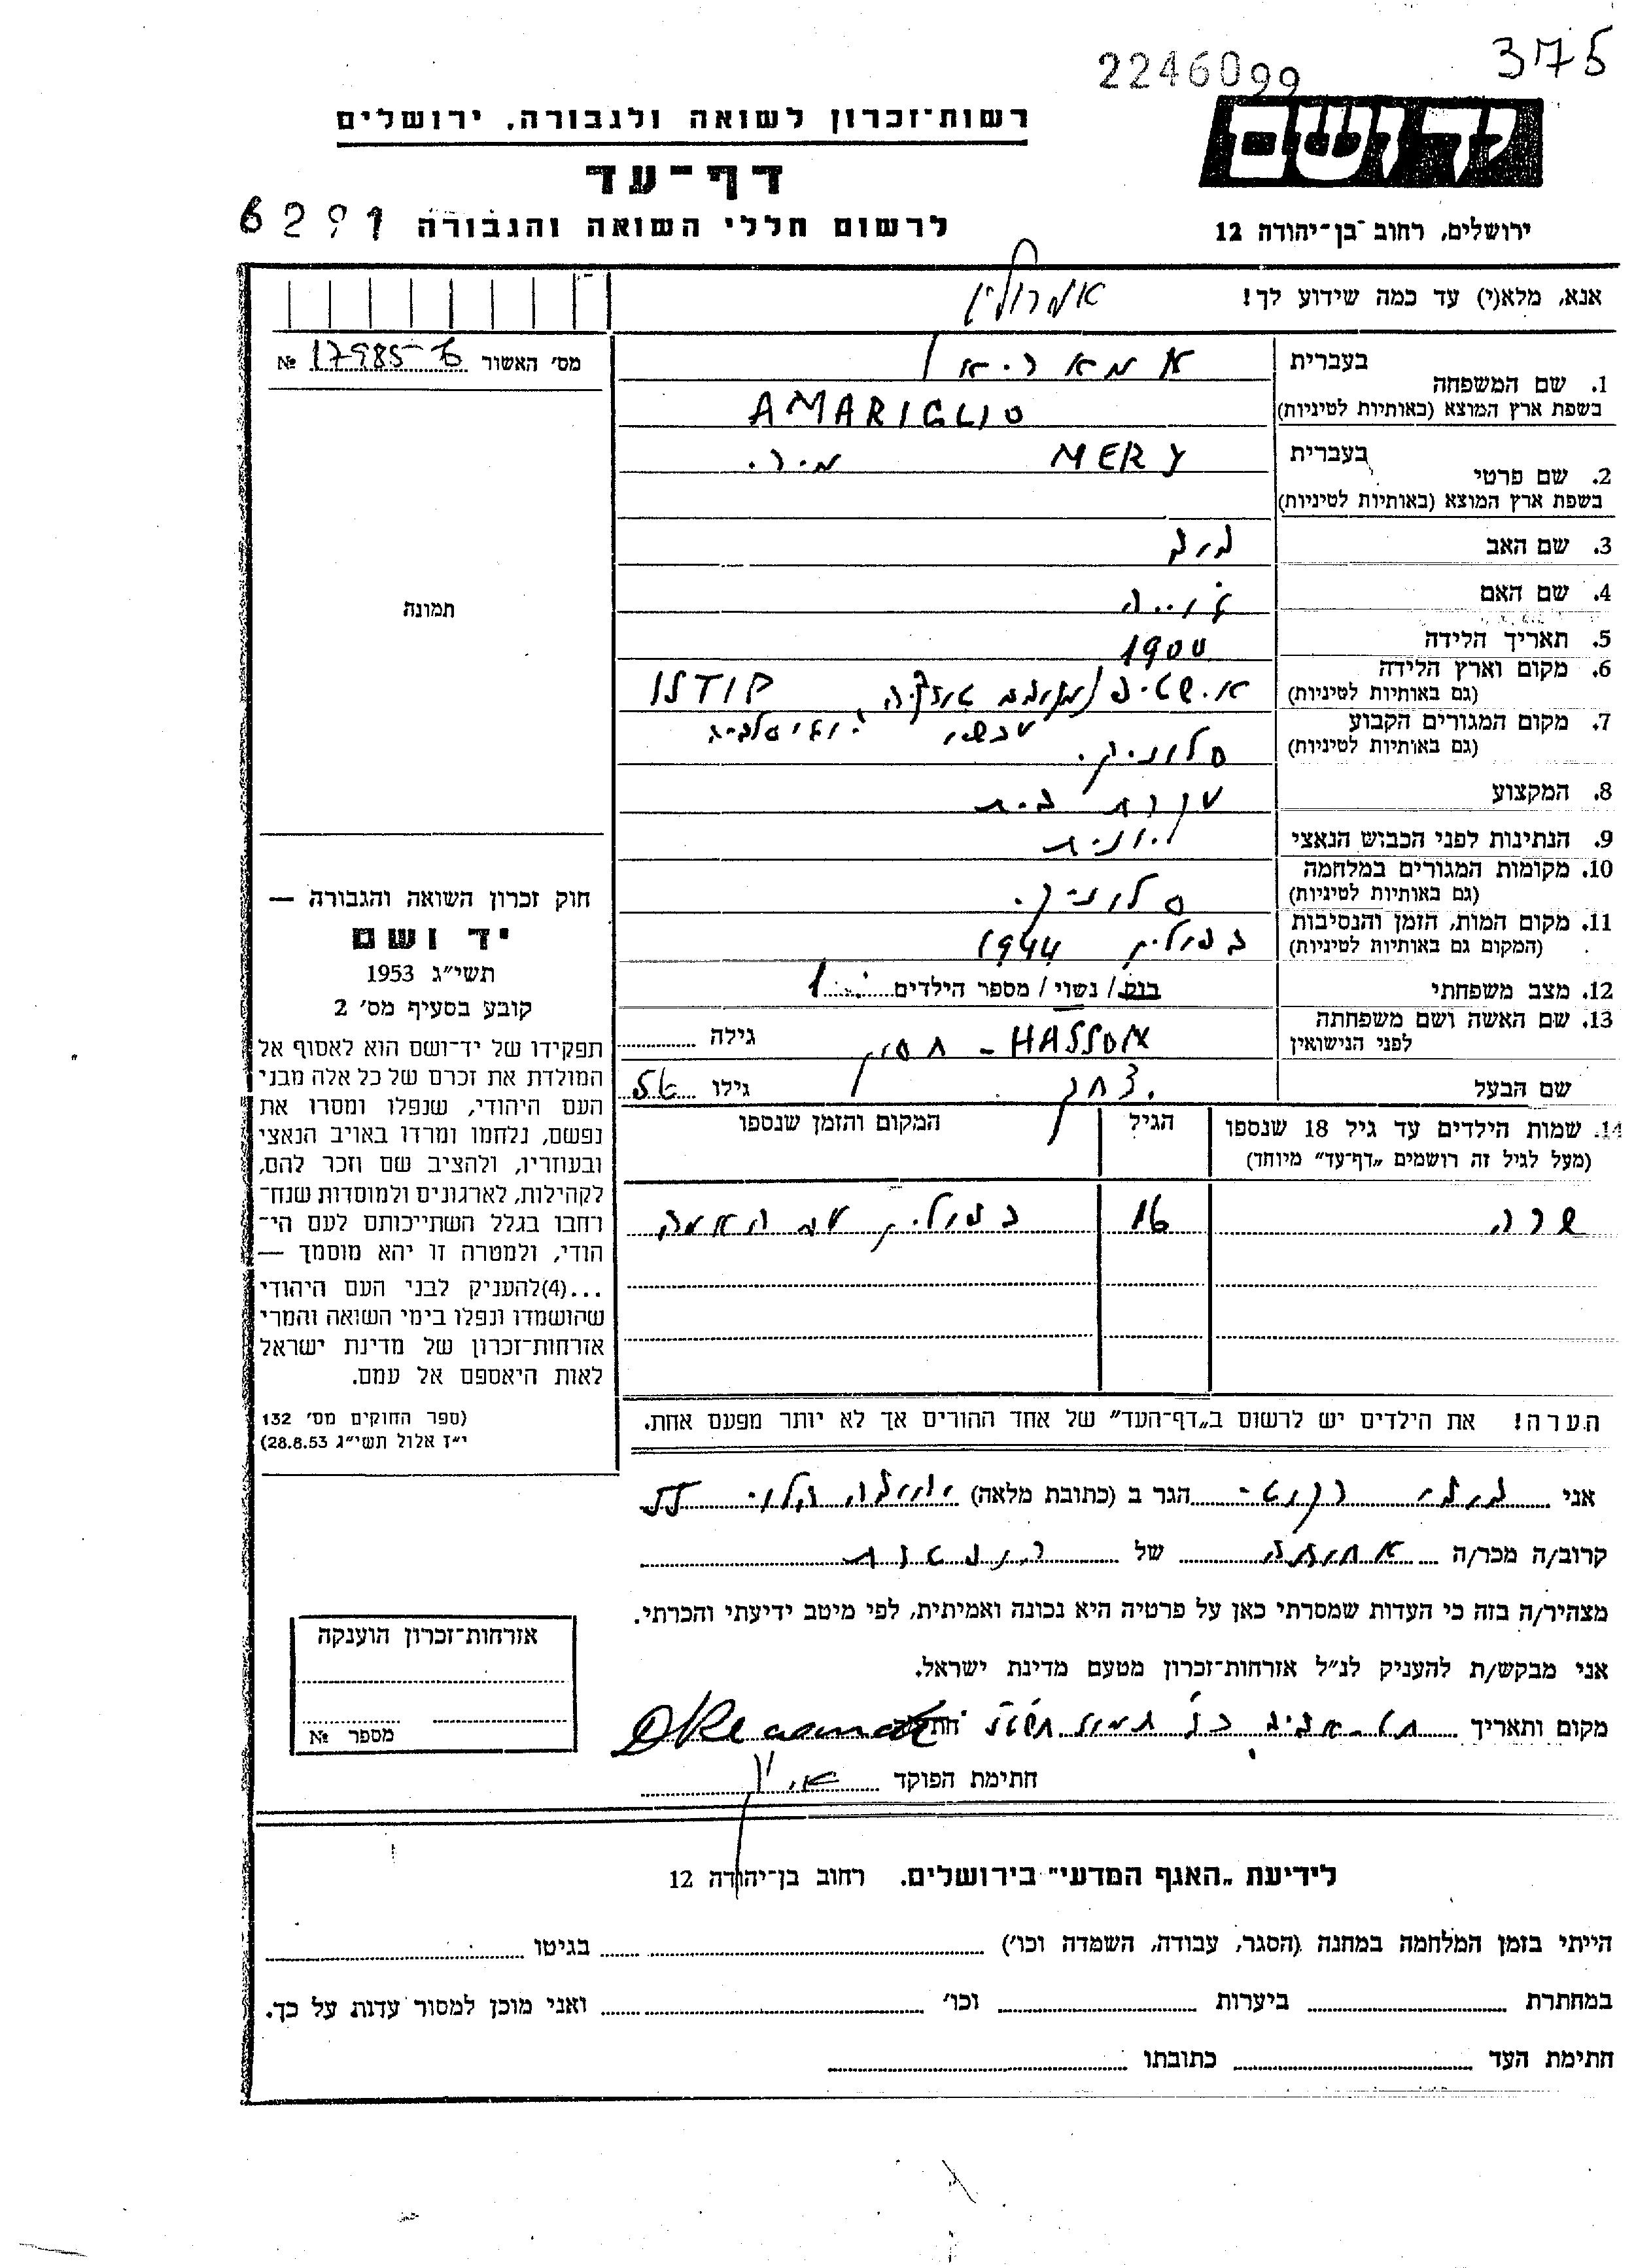 375
2246099
יד ושם
ירושלים, רחוב בן־יהודה 12
רשות־זכרון לשואה ולגבורה, ירושלים
דף־עד
לרשום חללי השואה והגבורה 6291
אנא, מלא(י) עד כמה שידוע לך!
מס' האשור № 17985-
1. שם המשפחה
בעברית
בשפת ארץ המוצא (באותיות לטיניות) AMARIGLIO
2. שם פרטי
בעברית MERY מירי
בשפת ארץ המוצא (באותיות לטיניות)
3. שם האב
4. שם האם
5. תאריך הלידה 1900
6. מקום וארץ הלידה
(גם באותיות לטיניות)
7. מקום המגורים הקבוע
(גם באותיות לטיניות) סלוניקי
8. המקצוע עקרת בית
9. הנתינות לפני הכבוש הנאצי יונית
10. מקומות המגורים במלחמה
(גם באותיות לטיניות) סלוניקי
11. מקום המות, הזמן והנסיבות
(המקום גם באותיות לטיניות) בפולין 1944
12. מצב משפחתי רווק / נשוי / מספר הילדים 1
13. שם האשה ושם משפחתה
לפני הנישואין HASSON - חסון גילה
שם הבעל יצחק גילו
14. שמות הילדים עד גיל 18 שנספו
(מעל לגיל זה רושמים „דף־עד" מיוחד)
הגיל
המקום והזמן שנספו
שרה 16 בפולין עם האמא
הערה! את הילדים יש לרשום ב„דף־העד" של אחד ההורים אך לא יותר מפעם אחת.
תמונה
חוק זכרון השואה והגבורה —
יד ושם
תשי"ג 1953
קובע בסעיף מס' 2
תפקידו של יד־ושם הוא לאסוף אל
המולדת את זכרם של כל אלה מבני
העם היהודי, שנפלו ומסרו את
נפשם, נלחמו ומרדו באויב הנאצי
ובעוזריו, ולהציב שם וזכר להם,
לקהילות, לארגונים ולמוסדות שנח־
רחבו בגלל השתייכותם לעם הי־
הודי, ולמטרה זו יהא מוסמך —
...(4)להעניק לבני העם היהודי
שהושמדו ונפלו בימי השואה והמרי
אזרחות־זכרון של מדינת ישראל
לאות היאספם אל עמם.
(ספר החוקים מס' 132
י"ז אלול תשי"ג 28.8.53)
אני הגר ב (כתובת מלאה) יהודה הלוי
קרוב/ה מכר/ה של
מצהיר/ה בזה כי העדות שמסרתי כאן על פרטיה היא נכונה ואמיתית, לפי מיטב ידיעתי והכרתי.
אני מבקש/ת להעניק לנ"ל אזרחות־זכרון מטעם מדינת ישראל.
מקום ותאריך תל-אביב חתימה
חתימת הפוקד
אזרחות־זכרון הוענקה
מספר №
לידיעת „האגף המדעי" בירושלים. רחוב בן־יהודה 12
הייתי בזמן המלחמה במחנה (הסגר, עבודה, השמדה וכו') בגיטו
במחתרת ביערות וכו' ואני מוכן למסור עדות על כך.
חתימת העד כתובתו